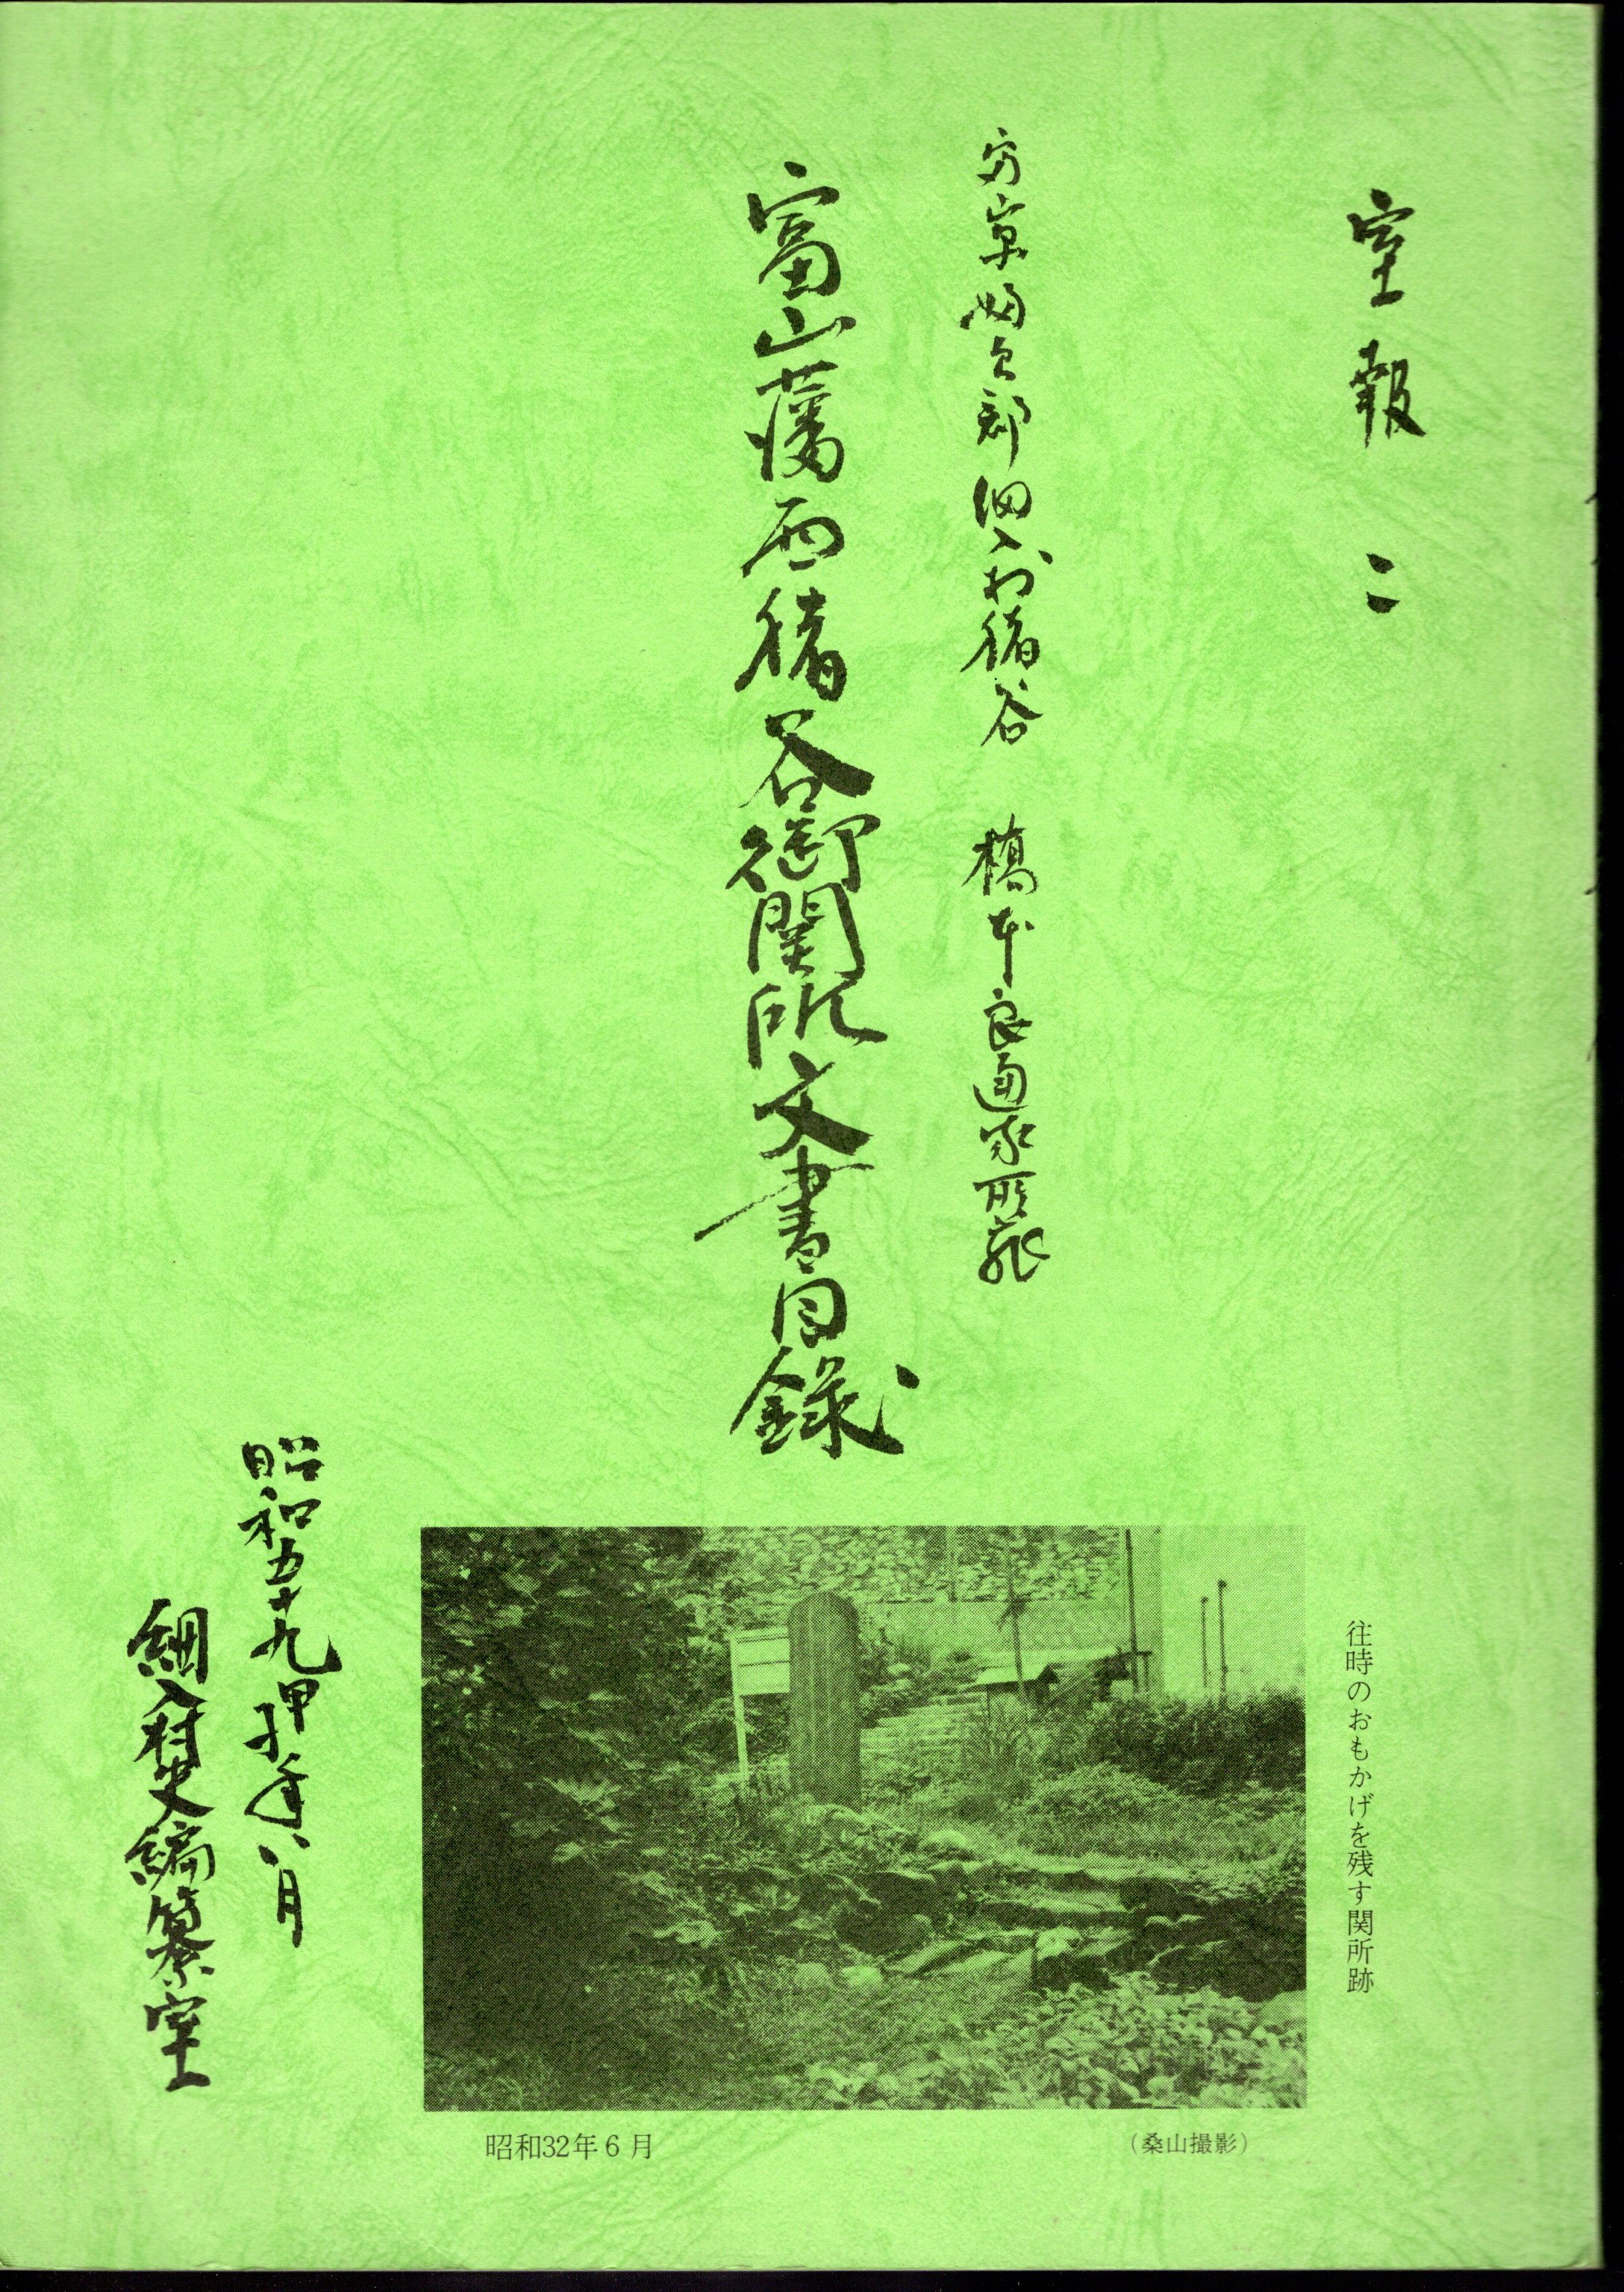 室報 二
富山県婦負郡細入村猪谷 橋本良通家所蔵
富山藩西猪谷御関所文書目録
往時のおもかげを残す関所跡
昭和32年6月
(桑山撮影)
昭和五十九甲子年八月
細入村史編纂室